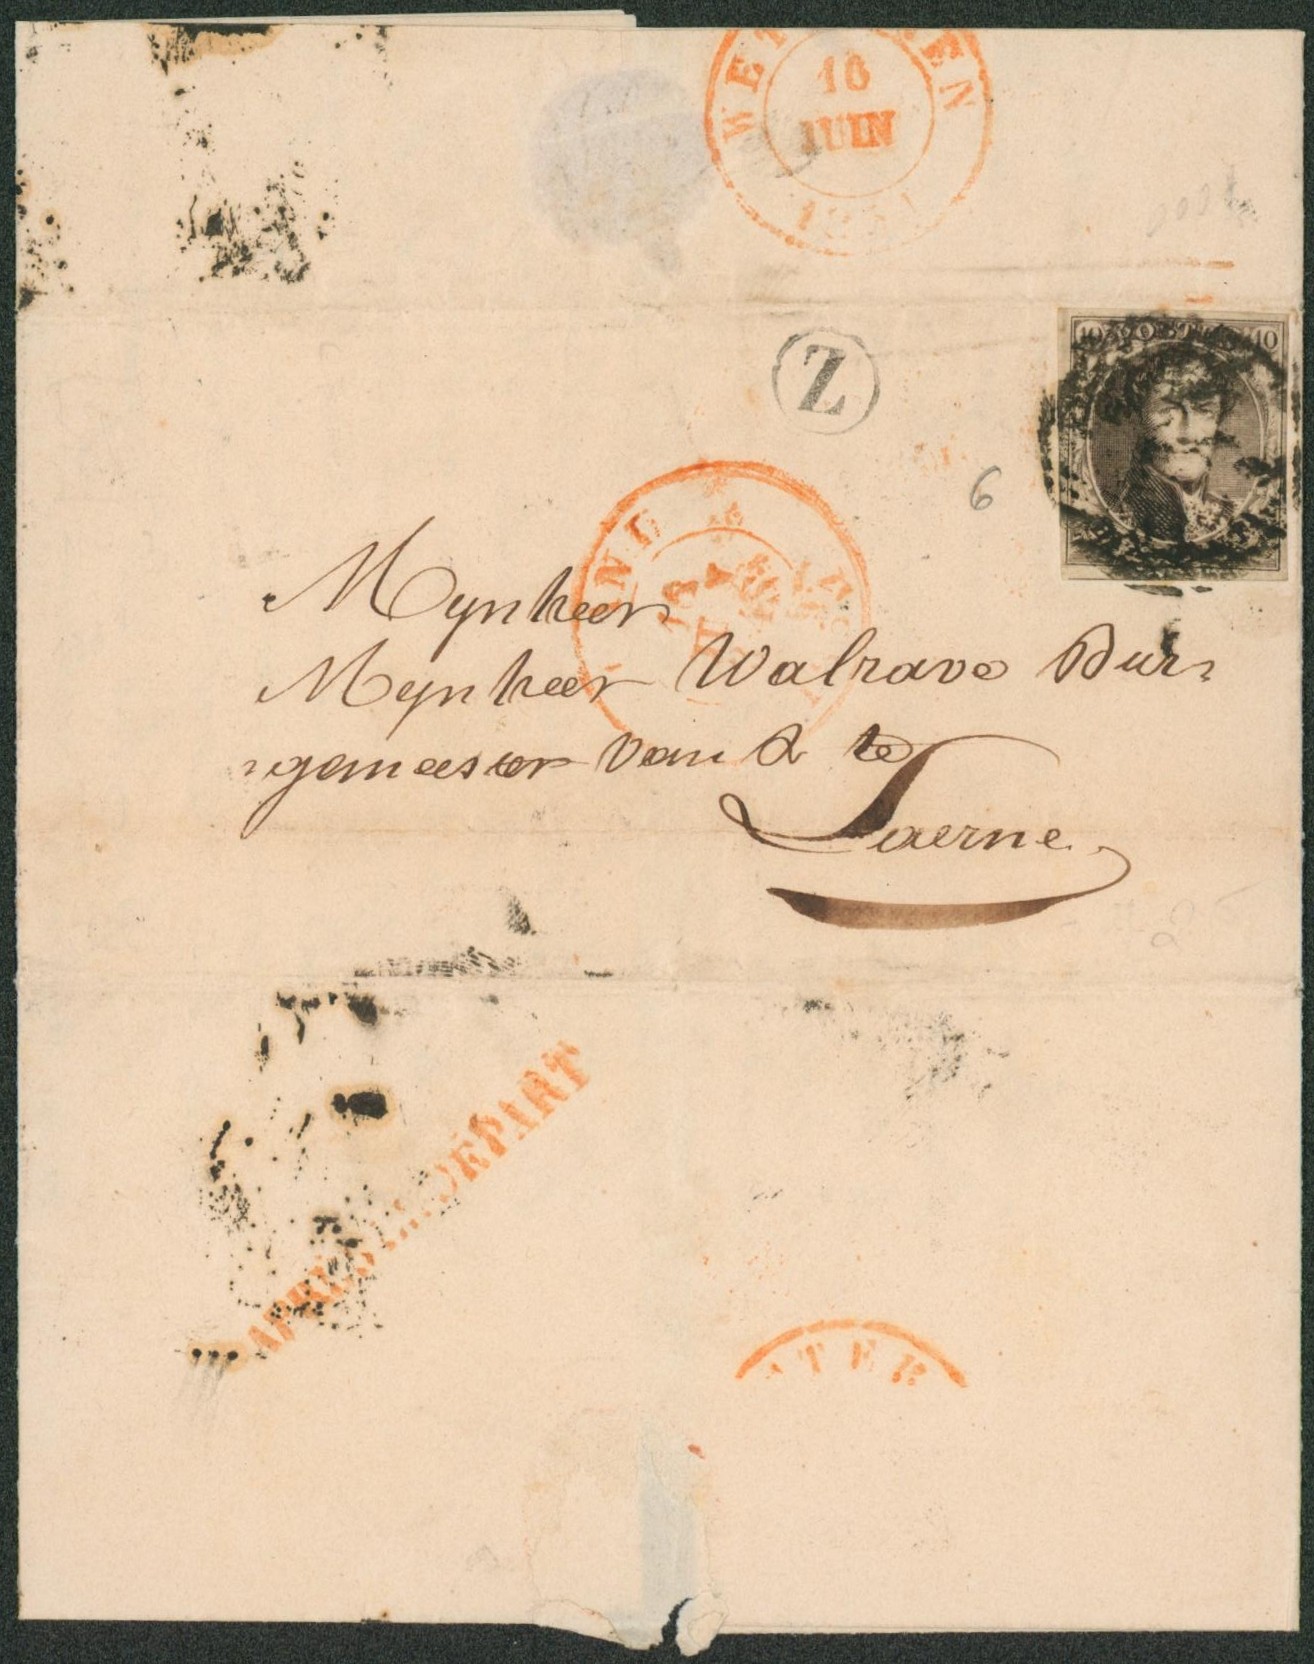 WETTEREN
16
JUIN
1851
Z
10 POSTES 10
6
Mynheer
Mynheer Walrave Bur=
=gemeester van & te
Laerne
APRES LE DÉPART
TTER